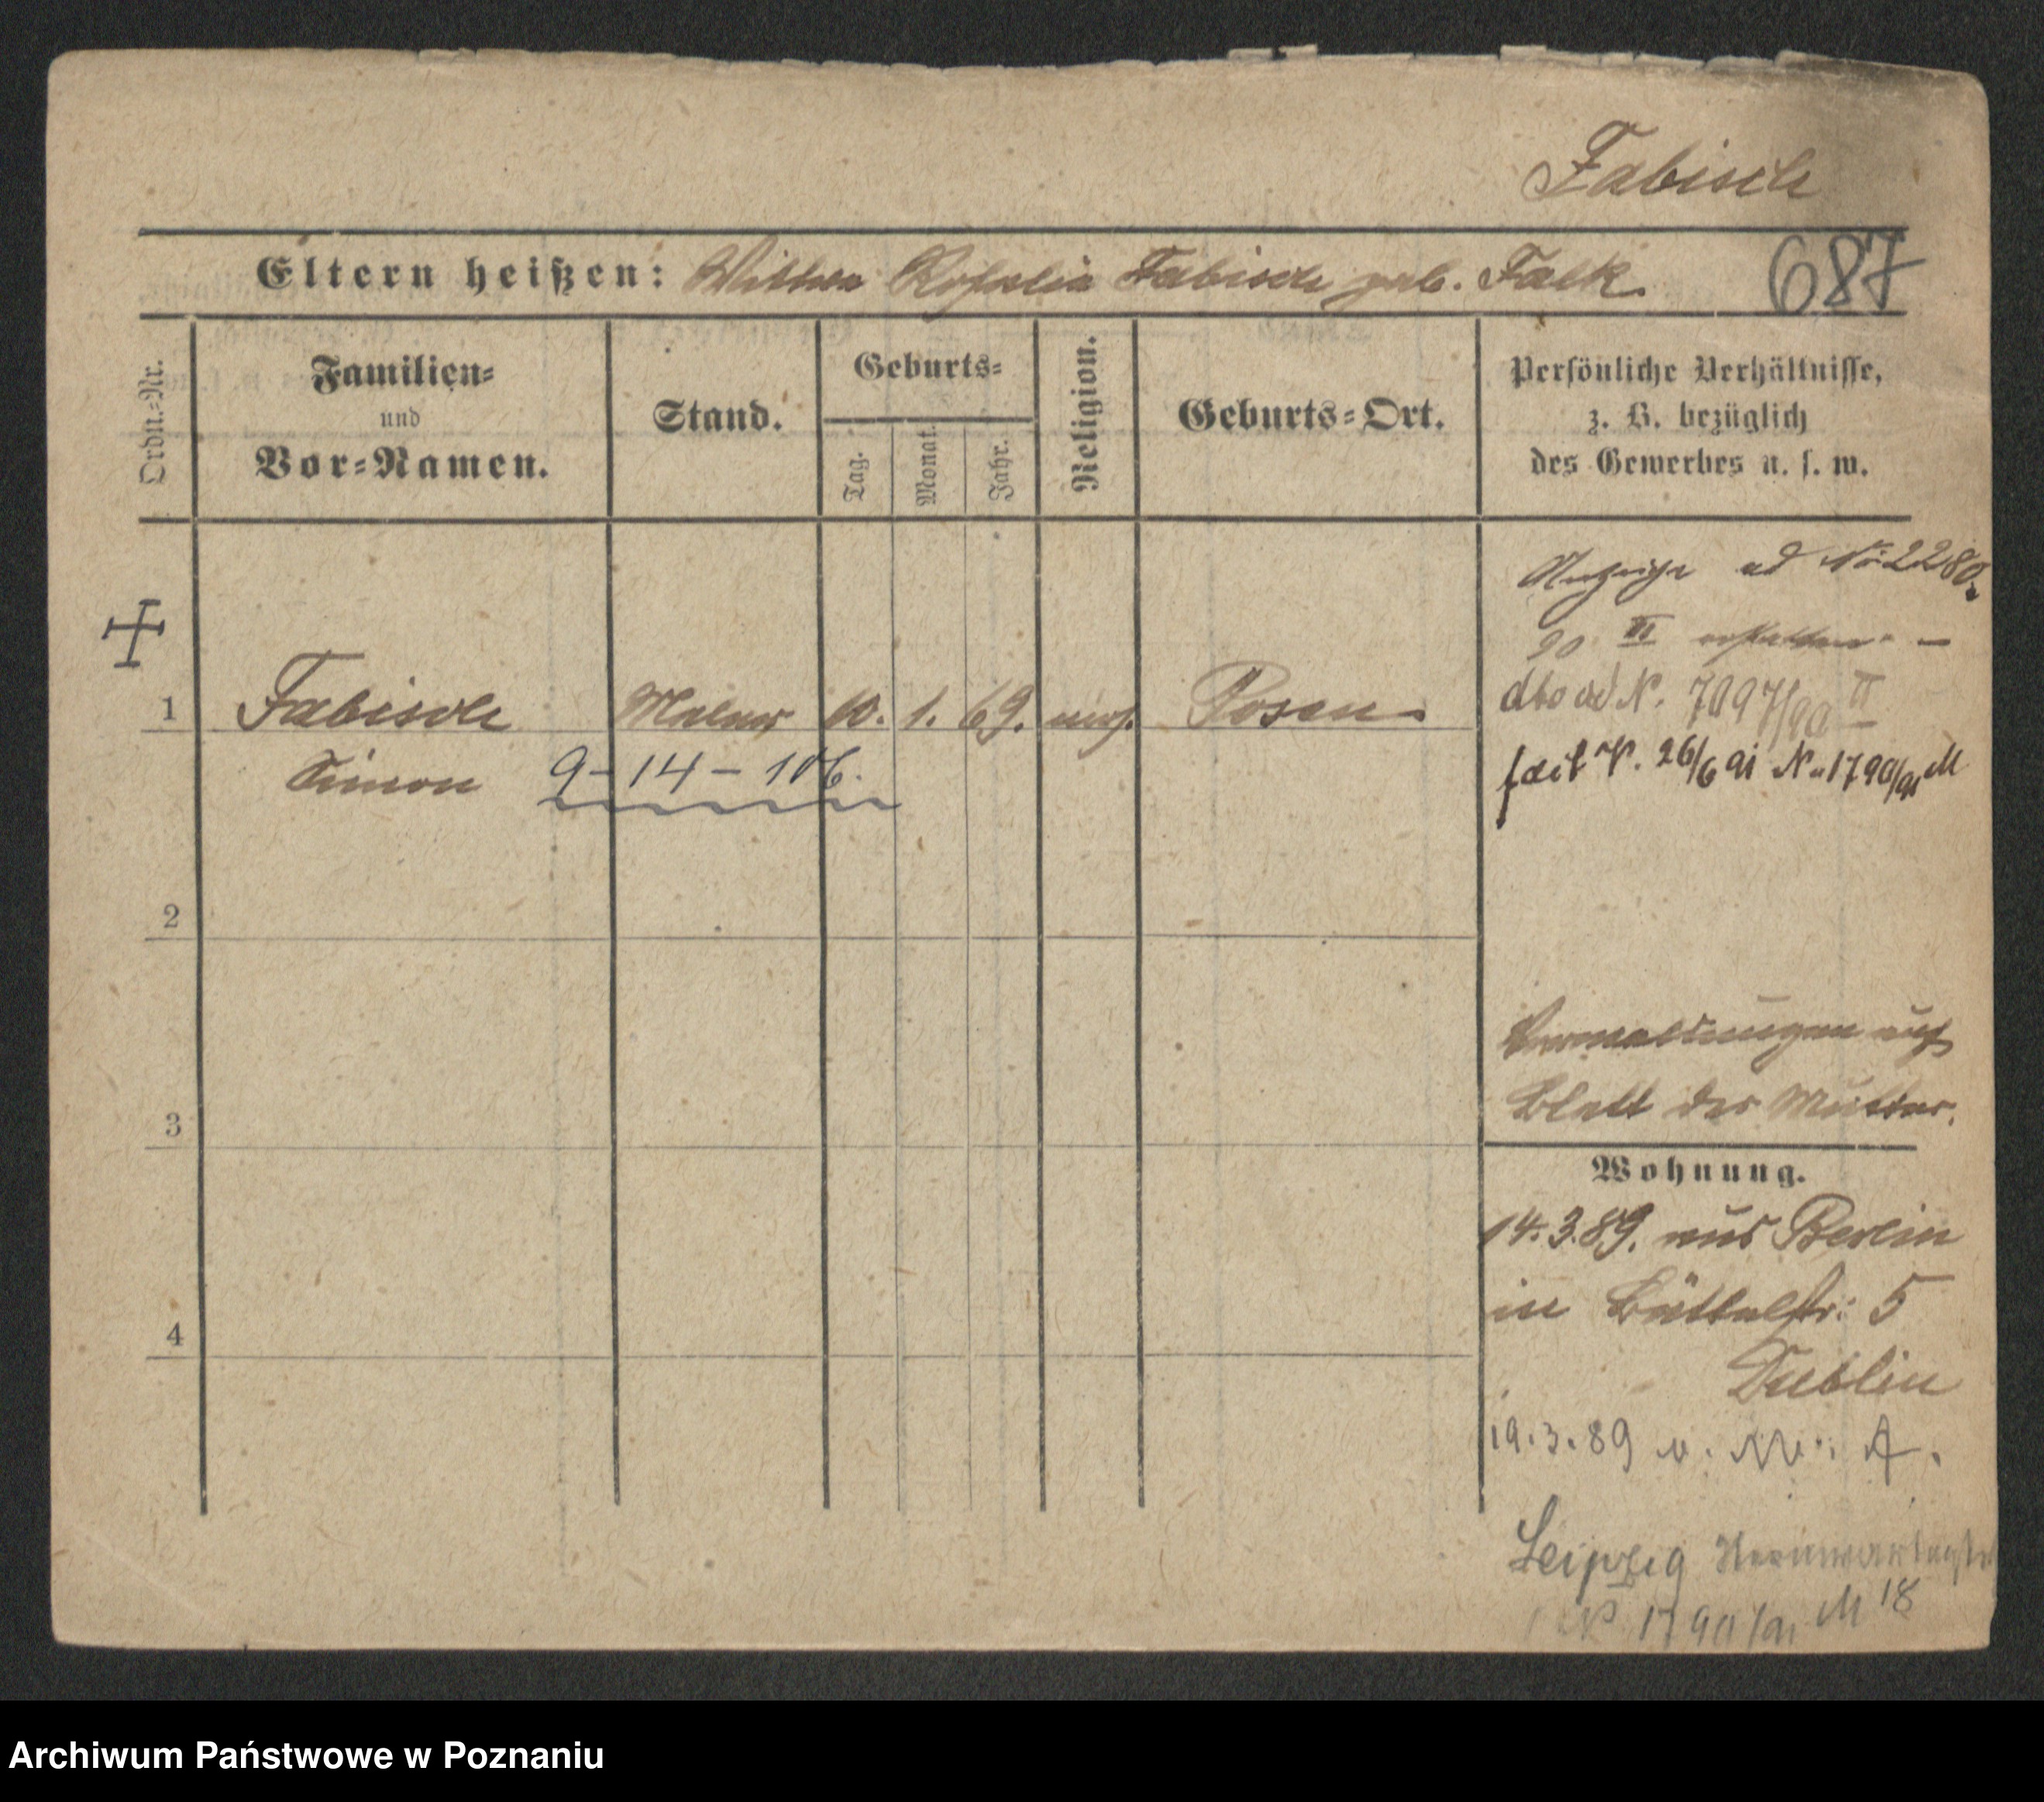 Fabisch
Eltern heißen: Wittwe Rosalia Fabisch geb. Falk.
687
Ordn.-Nr.
Familien-
und
Vor-Namen.
Stand.
Geburts-
Tag.
Monat.
Jahr.
Religion.
Geburts-Ort.
Persönliche Verhältnisse,
z. B. bezüglich
des Gewerbes u. s. w.
Anzeige ad No 2280
90 II erstatten. —
dto ad N. 7097/90 II
1 Fabisch Maler 10. 1. 69. mos. Posen
Simon 9-14-106.
26/6 91 N. 1790/91 M
2
3
4
Vermeldungen auf
Blatt der Mutter.
Wohnung.
14.3.89. aus Berlin
in Büttelstr: 5
Dublin
19.3.89 A.
Leipzig
N 1790/91 M 18
Archiwum Państwowe w Poznaniu